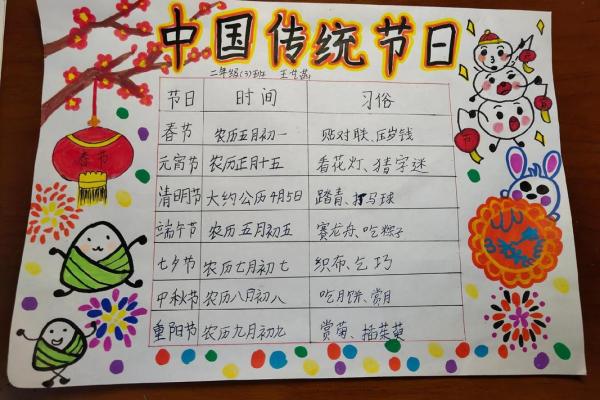 中国传统节日
二年级(3)班
节日 时间 习俗
春节 农历五月初一 贴对联、压岁钱
元宵节 农历正月十五 看花灯、猜字谜
清明节 大约公历4月5日 踏青、打马球
端午节 农历五月初五 赛龙舟、吃粽子
七夕节 农历七月初七 织布、乞巧
中秋节 农历八月初八 吃月饼、赏月
重阳节 农历九月初九 赏菊、插茱萸
春节